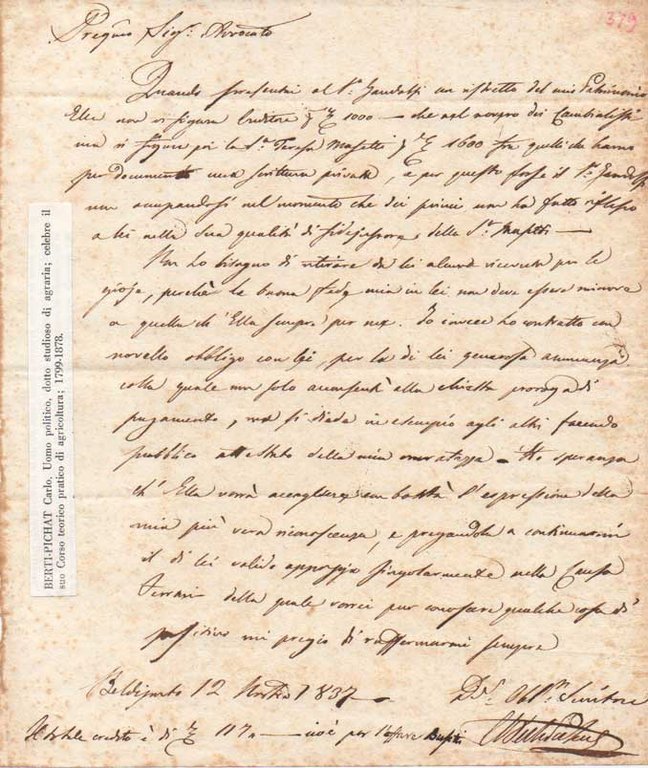 379
Pregmo Sigr. Avvocato
Quando presentai al Sr. Gandolfi un ristretto del mio Patrimonio
Ella non si figura Creditore 1000 — che nel novero dei Cambialisti
ma si figura poi la Sa. Teresa Masetti 1600 fra quelli che hanno
per documento una scrittura privata, e per questo forse il Sr. Gandolfi
non occupandosi nel momento che dei primi non ha fatto riflesso
a lei nella sua qualità di fidejussore della Sa. Masetti —
Non ho bisogno di ritirare da lei alcuna ricevuta per le
gioje, perchè la buona fede mia in lei non deve essere minore
a quella ch'Ella sempre per me. Io invece ho contratto un
novello obbligo con lei, per la di lei generosa annuenza
colla quale non solo acconsentì alla chiesta proroga di
pagamento, ma si diede in esempio agli altri facendo
pubblico attestato della mia onoratezza. Ho speranza
ch'Ella vorrà accogliere con bontà l'espressione della
mia più vera riconoscenza, e pregandola a continuarmi
il di lei valido appoggio singolarmente nella Causa
Ferrari della quale vorrei pur conoscere qualche cosa di
positivo mi pregio di raffermarmi sempre
12 1837 —
Di Lei Obbmo Servitore
Il totale credito è di 117. — cioè per l'affare
BERTI-PICHAT Carlo. Uomo politico, dotto studioso di agraria; celebre il
suo Corso teorico pratico di agricoltura; 1799-1878.